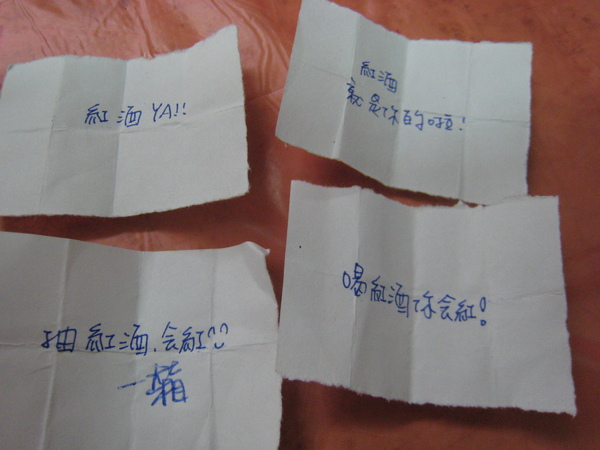 紅酒 YA!!
紅酒
就是你的啦!
抽紅酒.会紅!!
一箱
喝紅酒你会紅!